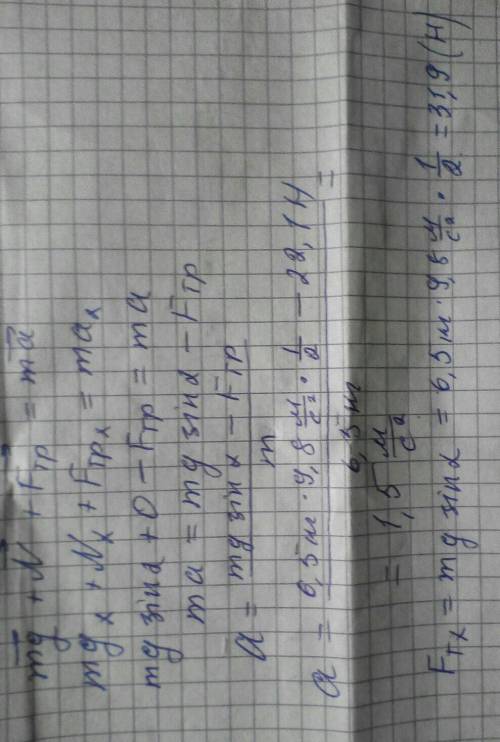 m𝑔⃗ + N⃗ + F⃗тр = ma⃗
mgₓ + Nₓ + Fтрₓ = maₓ
mg sinα + 0 − Fтр = ma
ma = mg sinα − Fтр
a = (mg sinα − Fтр) / m
a = (6,5 кг · 9,8 м/с² · 1/2 − 22,1 Н) / 6,5 кг =
= 1,5 м/с²
Fтх = mg sinα = 6,5 кг · 9,8 м/с² · 1/2 = 31,9 (Н)